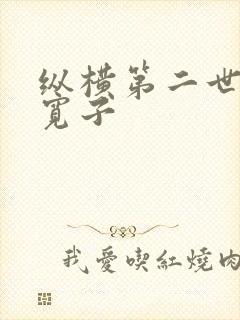 纵横第二世
寬子
我愛喫紅燒肉